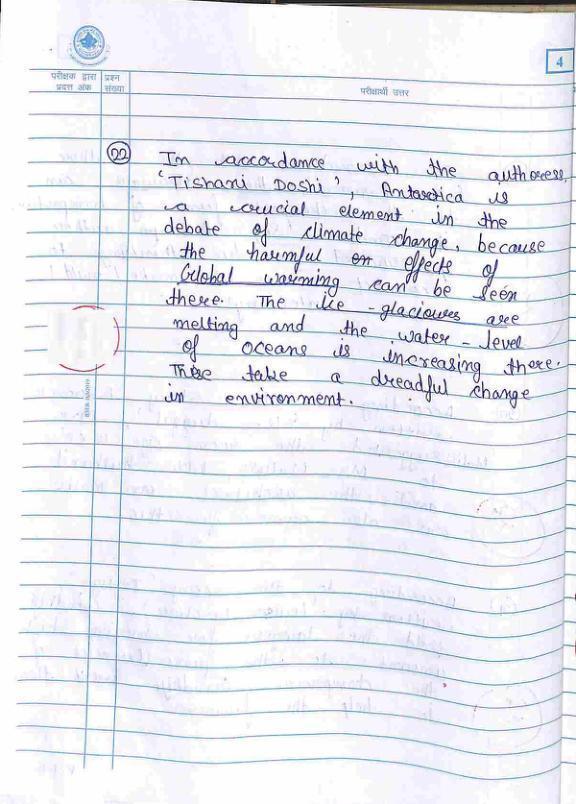 4
परीक्षक द्वारा प्रदत्त अंक
प्रश्न संख्या
परीक्षार्थी उत्तर
22 In accordance with the authoress,
'Tishani Doshi', Antarctica is
a crucial element in the
debate of climate change, because
the harmful en effects of
Global warming can be seen
there. The Ice-glaciours are
melting and the water-level
of oceans is increasing there.
These take a dreadful change
in environment.